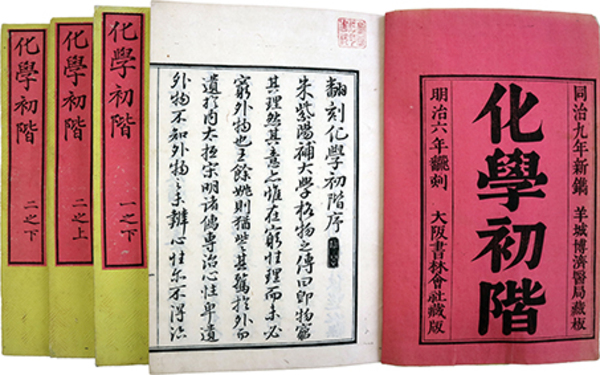 同治九年新鐫 羊城博濟醫局藏板
化學初階
明治六年飜刻 大阪書林會社藏版
翻刻化學初階序
朱紫陽補大學格物之傳曰即物窮
其理然其意亦惟在窮性理而未必
窮外物也王餘姚則猶訾其鶩於外而
遺於内大抵宋明諸儒專治心性卑遺
外物不知外物之未辨心性亦不得治
化學初階
一之下
化學初階
二之上
化學初階
二之下